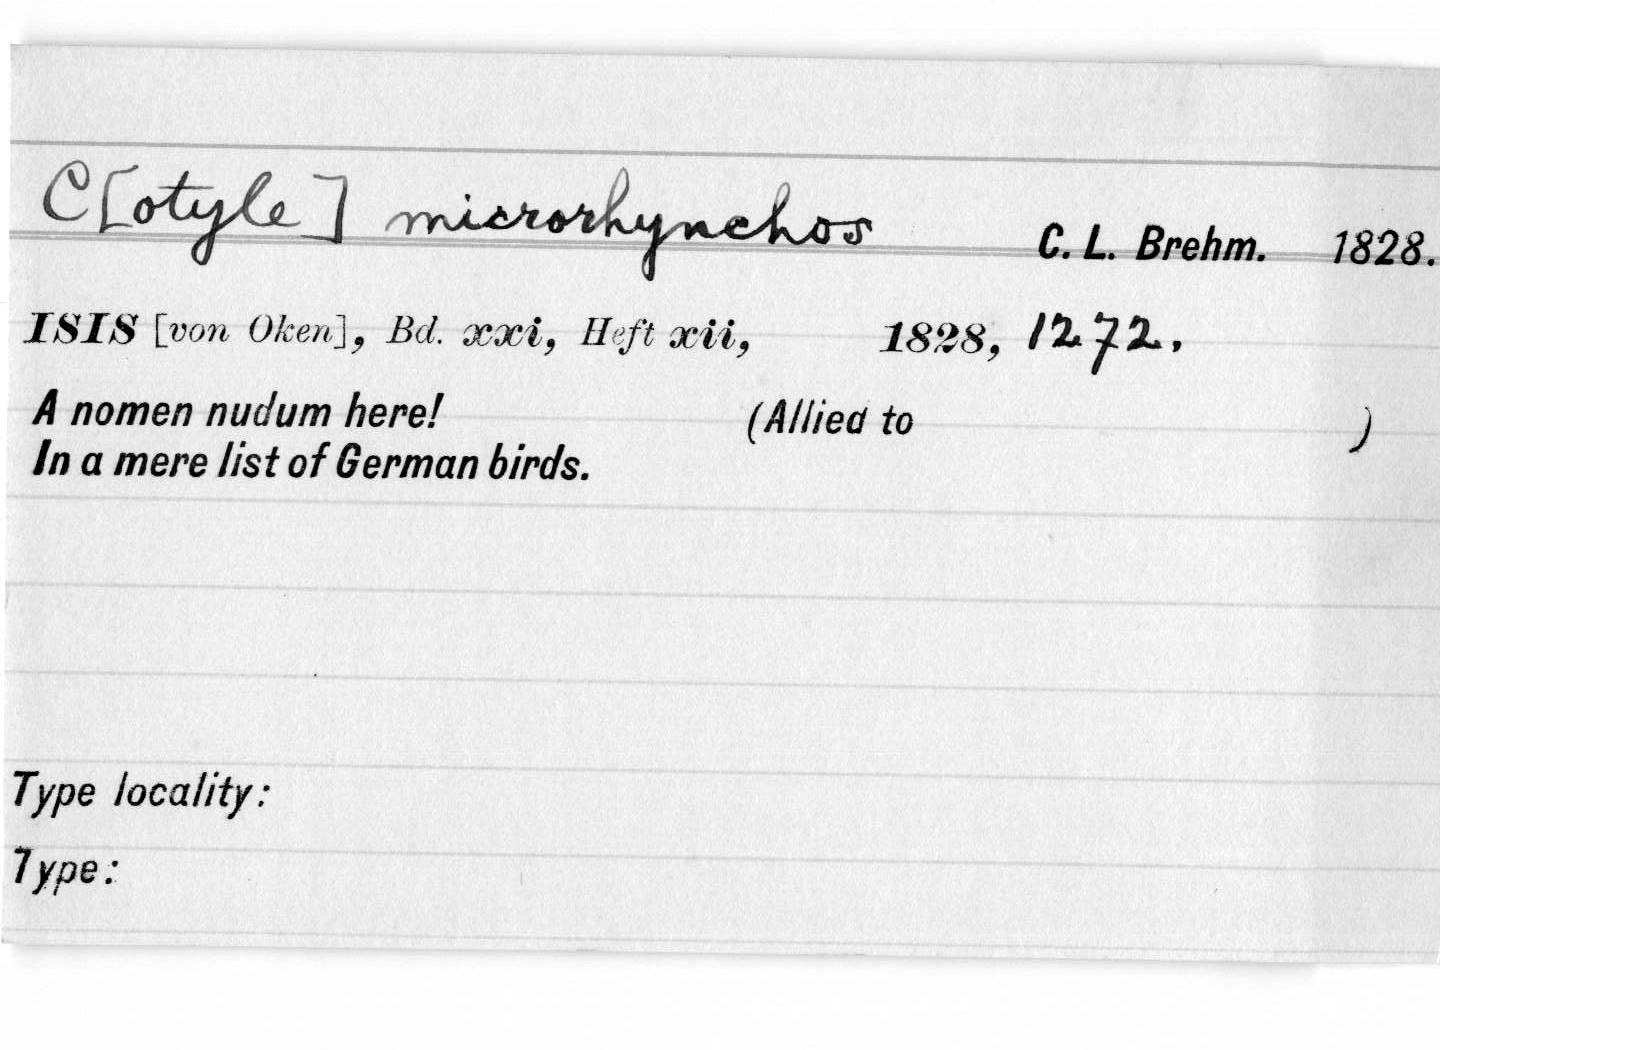 C[otyle] microrhynchos C. L. Brehm. 1828.
ISIS [von Oken], Bd. xxi, Heft xii, 1828, 1272.
A nomen nudum here! (Allied to )
In a mere list of German birds.
Type locality:
Type: